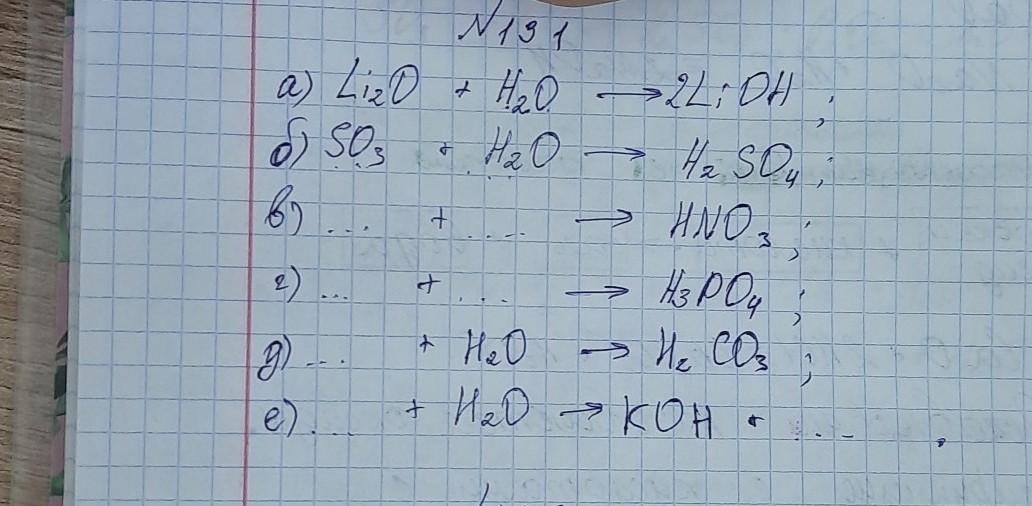 N 131
а) Li₂O + H₂O → 2LiOH ;
б) SO₃ + H₂O → H₂SO₄ ;
в) ... + .... → HNO₃ ;
г) ... + ... → H₃PO₄ ;
д) ... + H₂O → H₂CO₃ ;
е) ... + H₂O → KOH + ... .